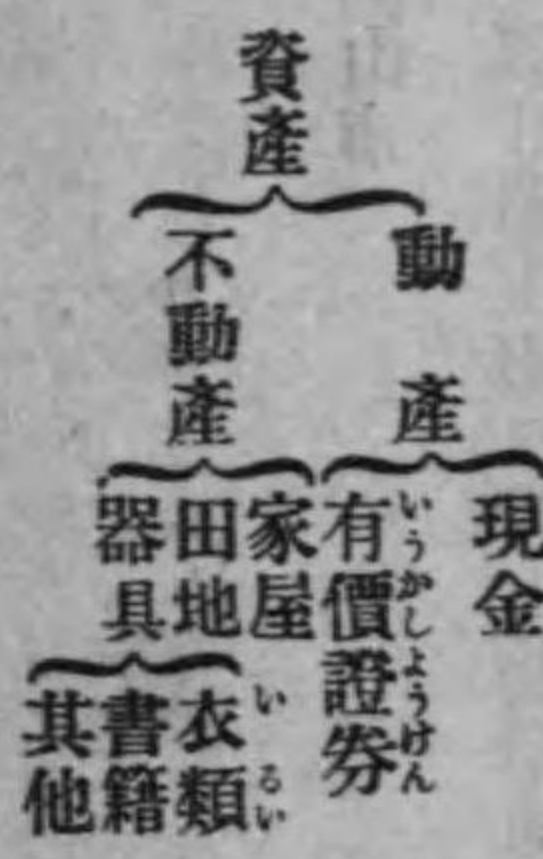 資產
動產
現金
有價證券
いうかしようけん
不動產
家屋
田地
器具
衣類
いるい
書籍
其他